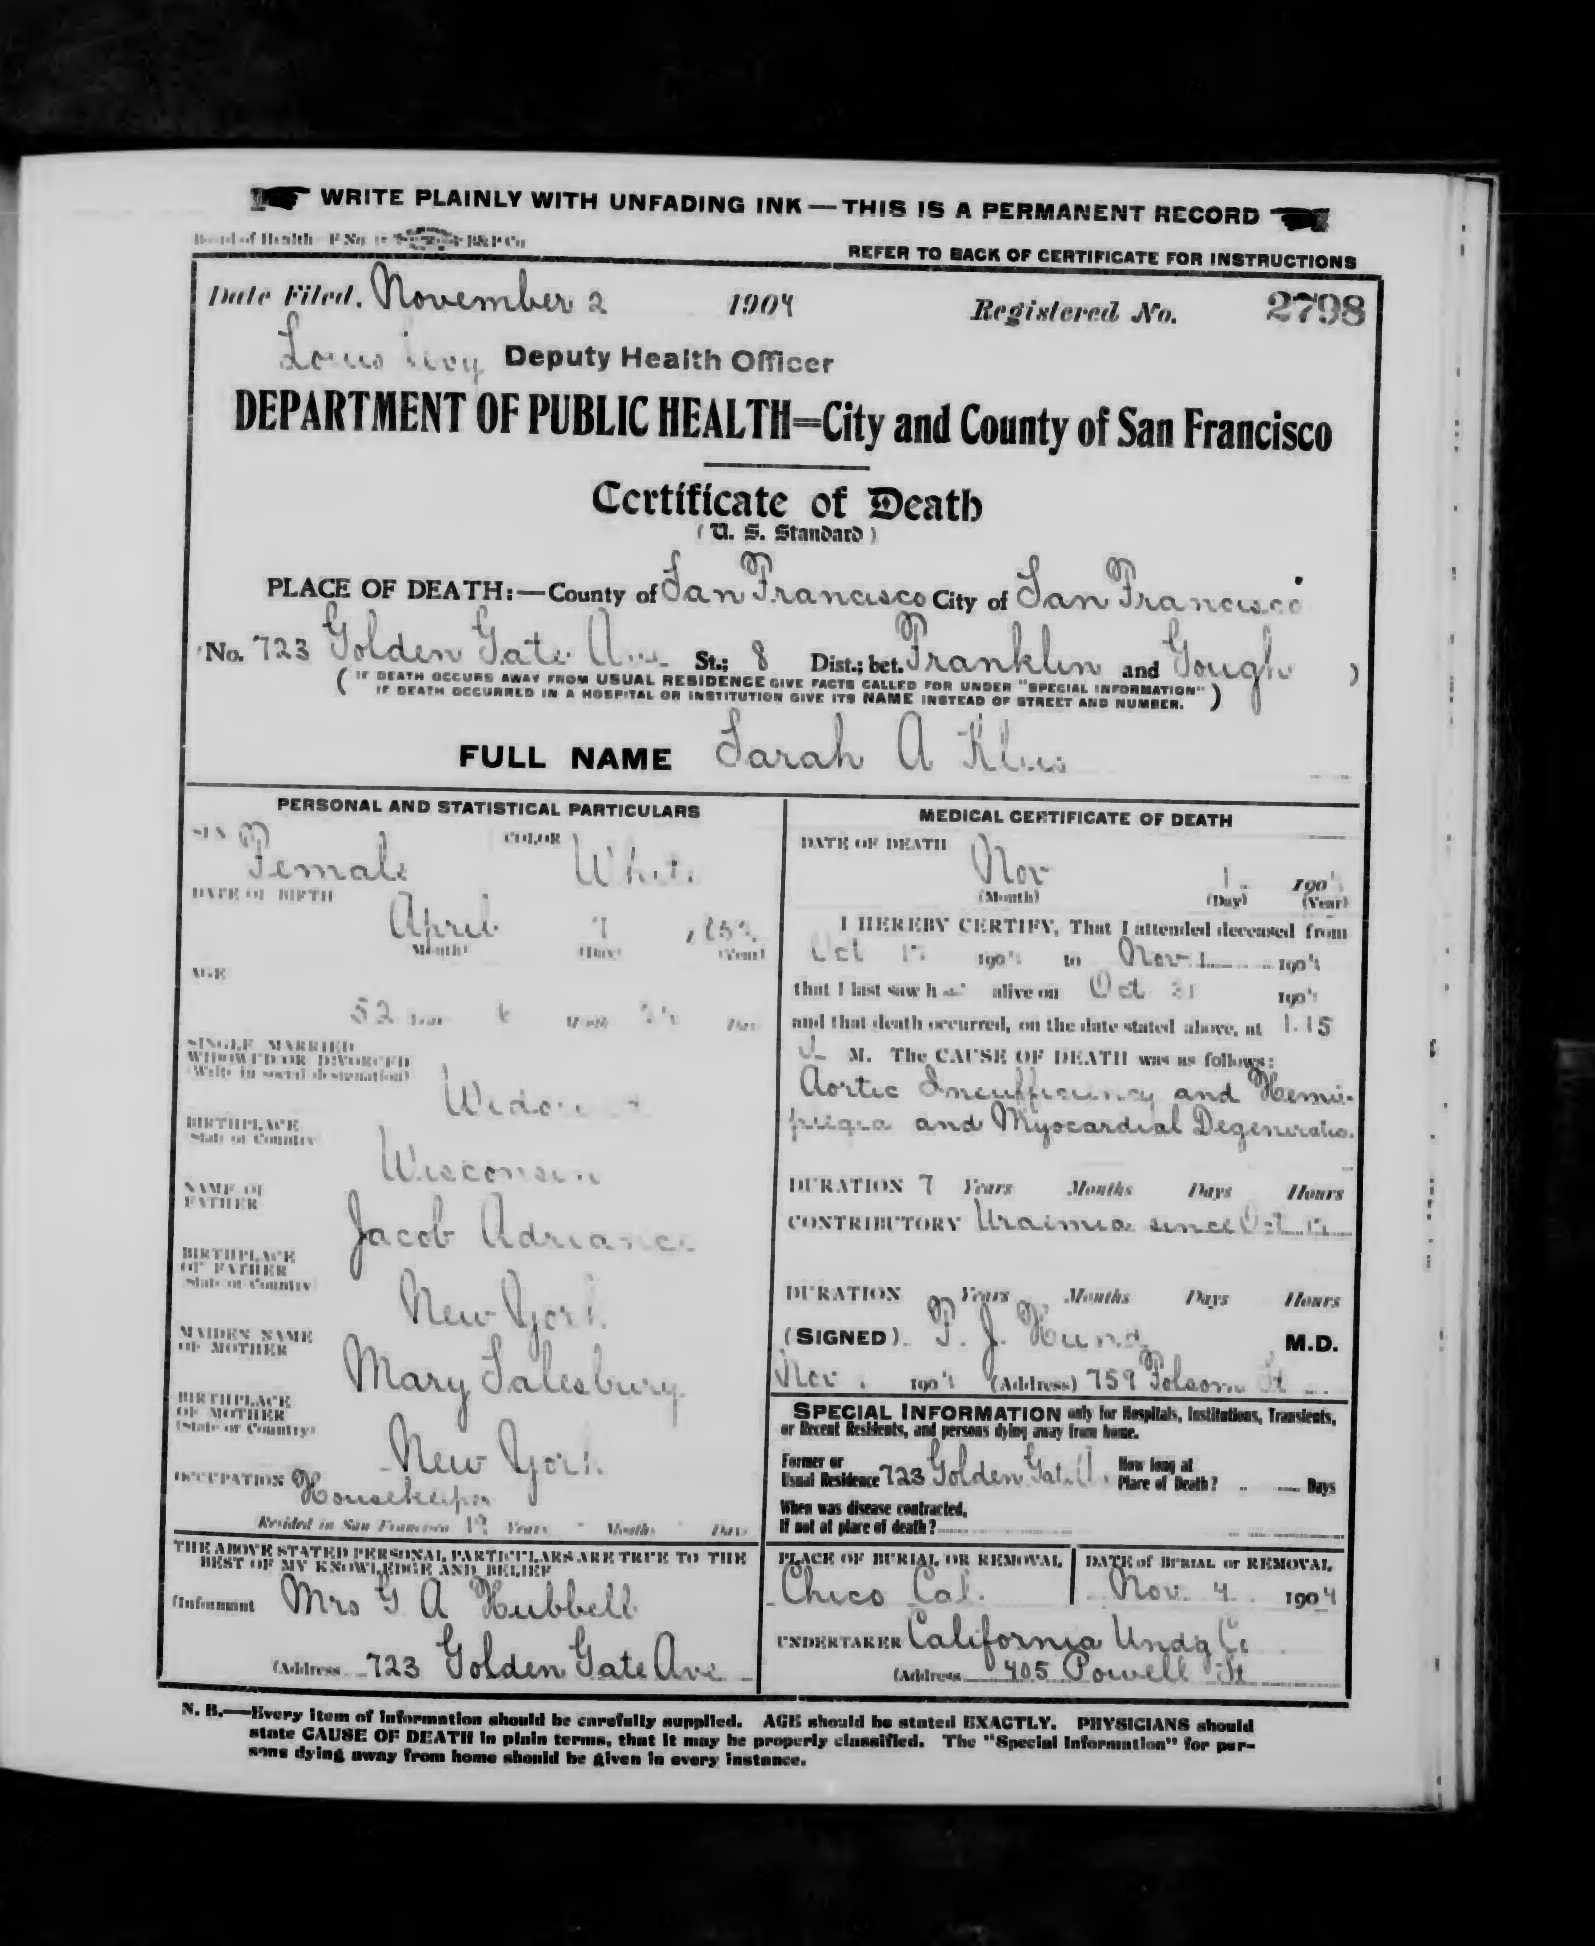 WRITE PLAINLY WITH UNFADING INK—THIS IS A PERMANENT RECORD
Board of Health B&P Co
REFER TO BACK OF CERTIFICATE FOR INSTRUCTIONS
Date Filed, November 2 1904 Registered No. 2798
Louis Levy Deputy Health Officer
DEPARTMENT OF PUBLIC HEALTH=City and County of San Francisco
Certificate of Death
(U. S. Standard)
PLACE OF DEATH:—County of San Francisco City of San Francisco
No. 723 Golden Gate Ave St.; 8 Dist.; bet. Franklin and Gough )
( IF DEATH OCCURS AWAY FROM USUAL RESIDENCE GIVE FACTS CALLED FOR UNDER "SPECIAL INFORMATION"
IF DEATH OCCURRED IN A HOSPITAL OR INSTITUTION GIVE ITS NAME INSTEAD OF STREET AND NUMBER. )
FULL NAME Sarah A
PERSONAL AND STATISTICAL PARTICULARS
SEX Female COLOR White
DATE OF BIRTH
April 7 185
(Month) (Day) (Year)
AGE
52 Years 6 Months Days
SINGLE, MARRIED
WIDOWED OR DIVORCED
(Write in social designation)
Widow
BIRTHPLACE
State or Country
Wisconsin
NAME OF
FATHER
Jacob Adriance
BIRTHPLACE
OF FATHER
State or Country
New York
MAIDEN NAME
OF MOTHER
Mary Salesbury
BIRTHPLACE
OF MOTHER
(State or Country)
New York
OCCUPATION Housekeeper
Resided in San Francisco Years Months Days
THE ABOVE STATED PERSONAL PARTICULARS ARE TRUE TO THE
BEST OF MY KNOWLEDGE AND BELIEF
(Informant Mrs G A Hubbell
(Address 723 Golden Gate Ave
MEDICAL CERTIFICATE OF DEATH
DATE OF DEATH
Nov 1 1904
(Month) (Day) (Year)
I HEREBY CERTIFY, That I attended deceased from
Oct 1904 to Nov 1 1904
that I last saw h alive on Oct 31 1904
and that death occurred, on the date stated above, at 1.15
M. The CAUSE OF DEATH was as follows:
Aortic Insufficiency and Hemi-
plegia and Myocardial Degeneration
DURATION 7 Years Months Days Hours
CONTRIBUTORY Uraemia since Oct
DURATION Years Months Days Hours
(SIGNED) M.D.
Nov 1904 (Address) 759 Folsom St
SPECIAL INFORMATION only for Hospitals, Institutions, Transients,
or Recent Residents, and persons dying away from home.
Former or
Usual Residence 723 Golden Gate A.
How long at
Place of Death? Days
When was disease contracted,
If not at place of death?
PLACE OF BURIAL OR REMOVAL
Chico Cal.
DATE of BURIAL or REMOVAL
Nov. 4 1904
UNDERTAKER California Undg Co
(Address 405 Powell St
N. B.—Every item of information should be carefully supplied. AGE should be stated EXACTLY. PHYSICIANS should
state CAUSE OF DEATH in plain terms, that it may be properly classified. The "Special Information" for per-
sons dying away from home should be given in every instance.